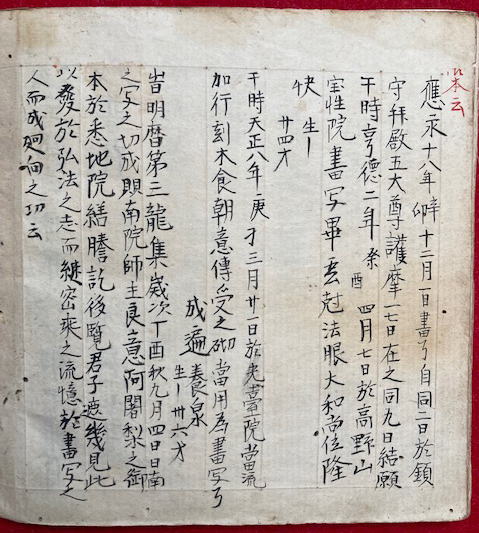 本云
應永十八年卯辛十二月一日書了自同二日於鎮
守拜殿五大尊護摩一七日在之同九日結願
于時亨德二年癸酉四月七日於高野山
宝性院書写畢 法眼大和尚位隆
快生一
廿四才
于時天正八年庚才三月廿一日於 院當流
加行刻木食朝意傳受之砌當用為書写了
成遍養泉
生一卅六才
旹明曆第三龍集歲次丁酉秋九月四日南
之写之切成賜南院師主良意阿闍梨之御
本於悉地院繕謄訖後覽君子遮幾見此
以發於弘法之志而継密乘之流憶於書写之
人而成廻向之功云